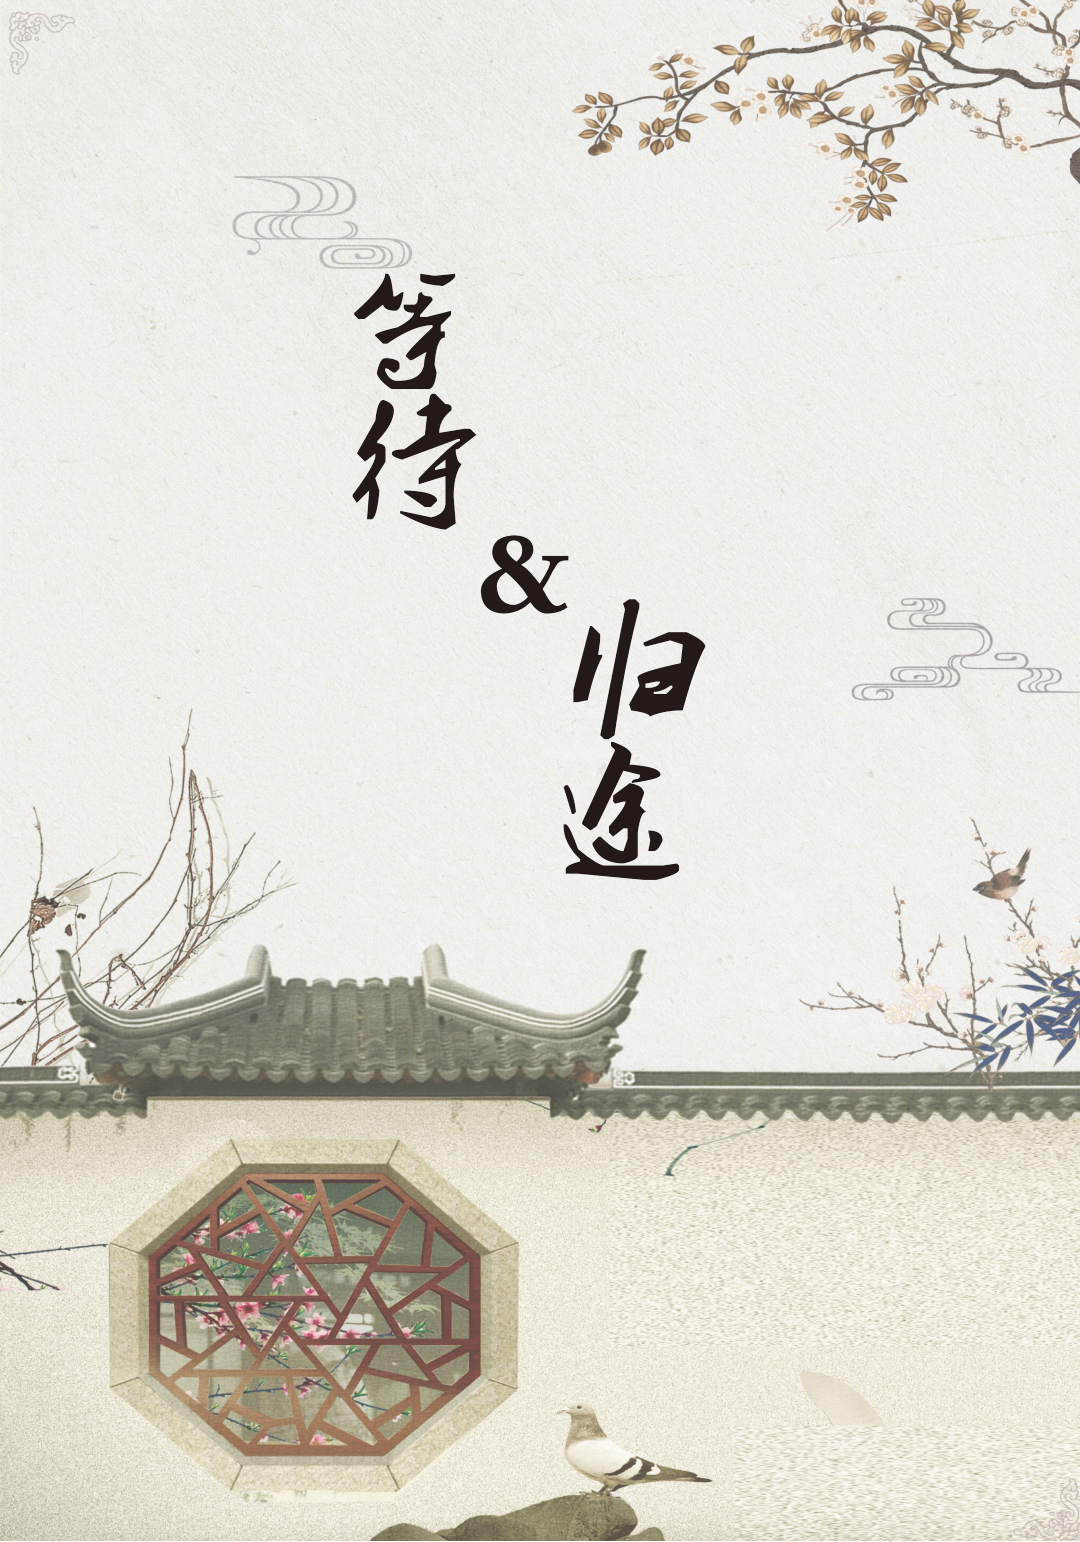 等待
&
归途